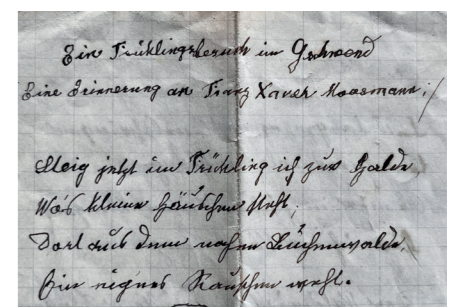 Ein Frühlingsbesuch im Gschwend
Eine Erinnerung an Franz Xaver Moosmann;/
Steig jetzt im Frühling ich zur Halde,
Wo's kleine Häuschen steht;
Dort aus dem nahen Buchenwalde,
Ein eignes Rauschen weht.